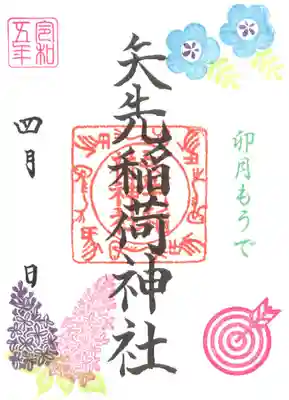 卯月もうで
矢先稲荷神社
令和
五年
四月 日